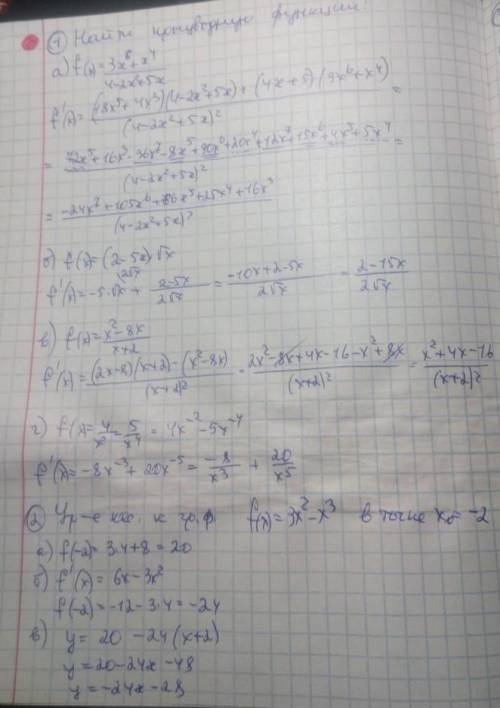 ① Найти производную функции:
а) f(x) = (3x⁶+x⁴)/(4-2x²+5x)
f'(x) = ((18x⁵+4x³)(4-2x²+5x) + (4x+5)(3x⁶+x⁴))/(4-2x²+5x)² =
= (72x⁵+16x³-36x⁷-8x⁵+90x⁶+20x⁴+12x⁷+15x⁶+4x⁵+5x⁴)/(4-2x²+5x)² =
= (-24x⁷+105x⁶+66x⁵+25x⁴+16x³)/(4-2x²+5x)²
б) f(x) = (2-5x)√x
f'(x) = -5·√x + (2-5x)/(2√x) = (-10x+2-5x)/(2√x) = (2-15x)/(2√x)
в) f(x) = (x²-8x)/(x+2)
f'(x) = ((2x-8)(x+2)-(x²-8x))/(x+2)² = (2x²-8x+4x-16-x²+8x)/(x+2)² = (x²+4x-16)/(x+2)²
г) f(x) = 4/x² - 5/x⁴ = 4x⁻² - 5x⁻⁴
f'(x) = -8x⁻³ + 20x⁻⁵ = -8/x³ + 20/x⁵
② Ур-е кас. к гр. ф. f(x) = 3x²-x³ в точке x₀ = -2
а) f(-2) = 3·4+8 = 20
б) f'(x) = 6x-3x²
f(-2) = -12-3·4 = -24
в) y = 20 -24(x+2)
y = 20-24x-48
y = -24x-28